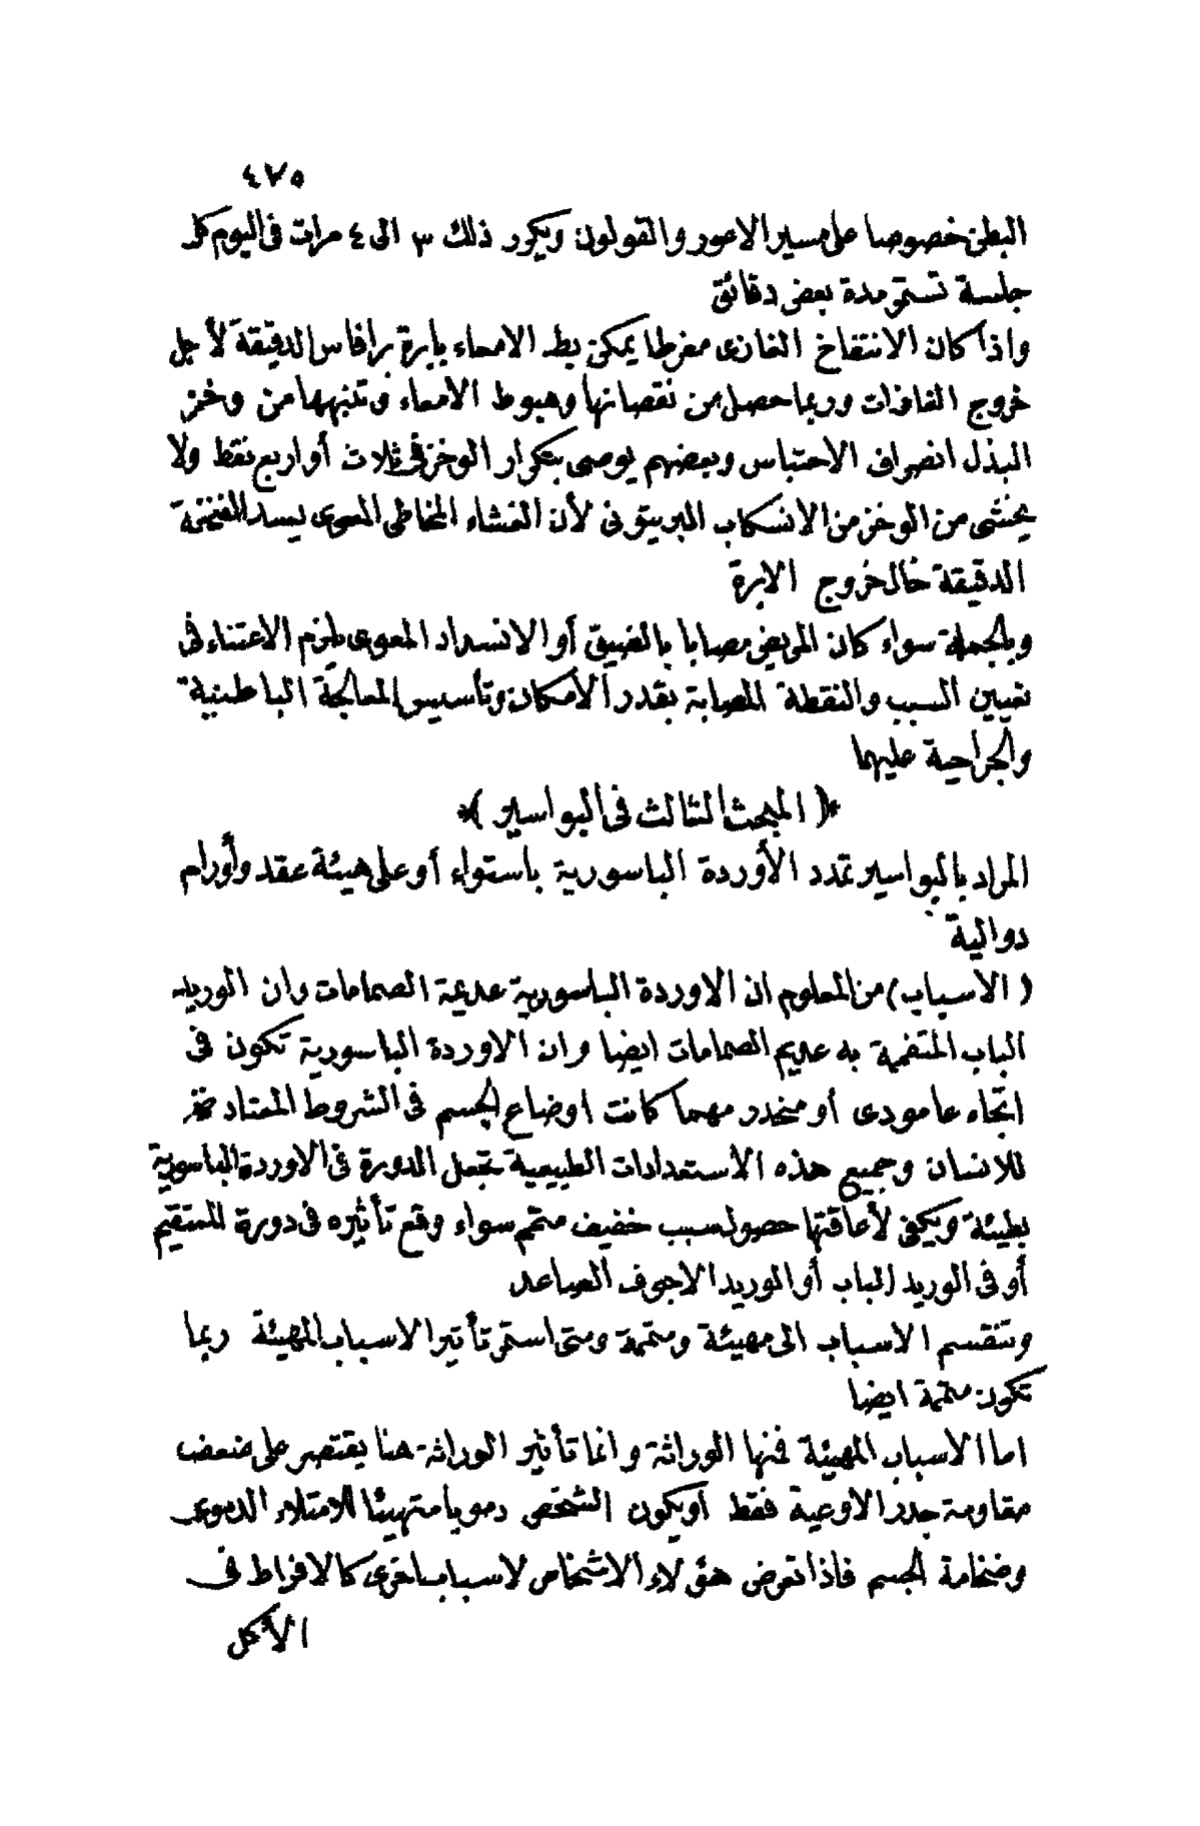 ٤٧٥
البطن خصوصا على مسير الاعور والقولون ويكرر ذلك ٣ الى ٤ مرات فى اليوم كل
جلسة تستمر مدة بعض دقائق
واذا كان الانتفاخ الغازى مفرطا يمكن بط الامعاء بابرة برافاس الدقيقة لأجل
خروج الغازات وربما حصل من نقصانها وهبوط الامعاء وتنبهها من وخز
البذل انصراف الاحتباس وبعضهم يوصى بتكرار الوخز فى ثلاث أو اربع نقط ولا
يخشى من الوخز من الانسكاب البريتونى لأن الغشاء المخاطى المعوى يسد الفتحة
الدقيقة حال خروج الابرة
وبالجملة سواء كان المريض مصابا بالضيق أو الانسداد المعوى يلزم الاعتناء فى
تعيين السبب والنقطة المصابة بقدر الامكان وتأسيس المعالجة الباطنية
والجراحية عليهما
*( المبحث الثالث فى البواسير )*
المراد بالبواسير تمدد الأوردة الباسورية باستواء أو على هيئة عقد وأورام
دوالية
( الاسباب ) من المعلوم ان الاوردة الباسورية عديمة الصمامات وان الوريد
الباب المتفممة به عديم الصمامات ايضا وان الاوردة الباسورية تكون فى
اتجاه عامودى أو منحدر مهما كانت اوضاع الجسم فى الشروط المعتاد
للانسان وجميع هذه الاستعدادات الطبيعية تجعل الدورة فى الاوردة الباسورية
بطيئة ويكفى لأعاقتها حصول سبب خفيف متمم سواء وقع تأثيره فى دورة المستقيم
أو فى الوريد الباب أو الوريد الاجوف الصاعد
وتنقسم الاسباب الى مهيئة ومتممة ومتى استمر تأثير الاسباب المهيئة ربما
تكون متممة ايضا
اما الاسباب المهيئة فمنها الوراثة وانما تأثير الوراثة هنا يقتصر على ضعف
مقاومة جدر الاوعية فقط أو يكون الشخص دمويا متهيئا للامتلاء الدموى
وضخامة الجسم فاذا تعرض هؤلاء الاشخاص لاسباب اخرى كالافراط فى
الأكل